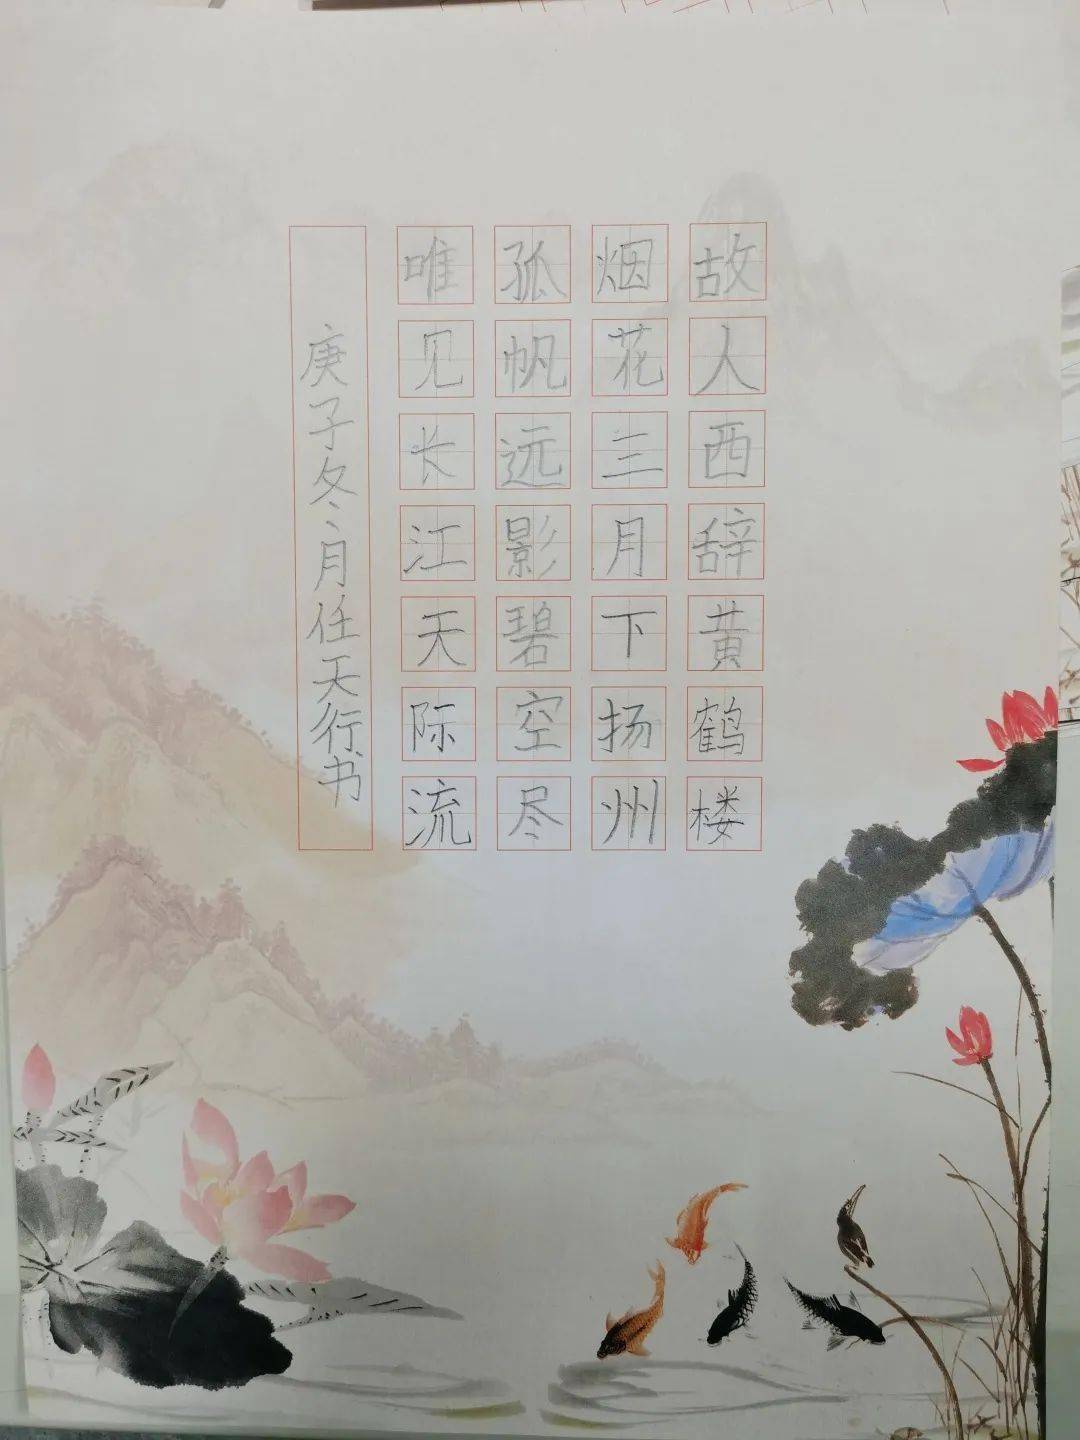 故人西辞黄鹤楼
烟花三月下扬州
孤帆远影碧空尽
唯见长江天际流
庚子冬月任天行书